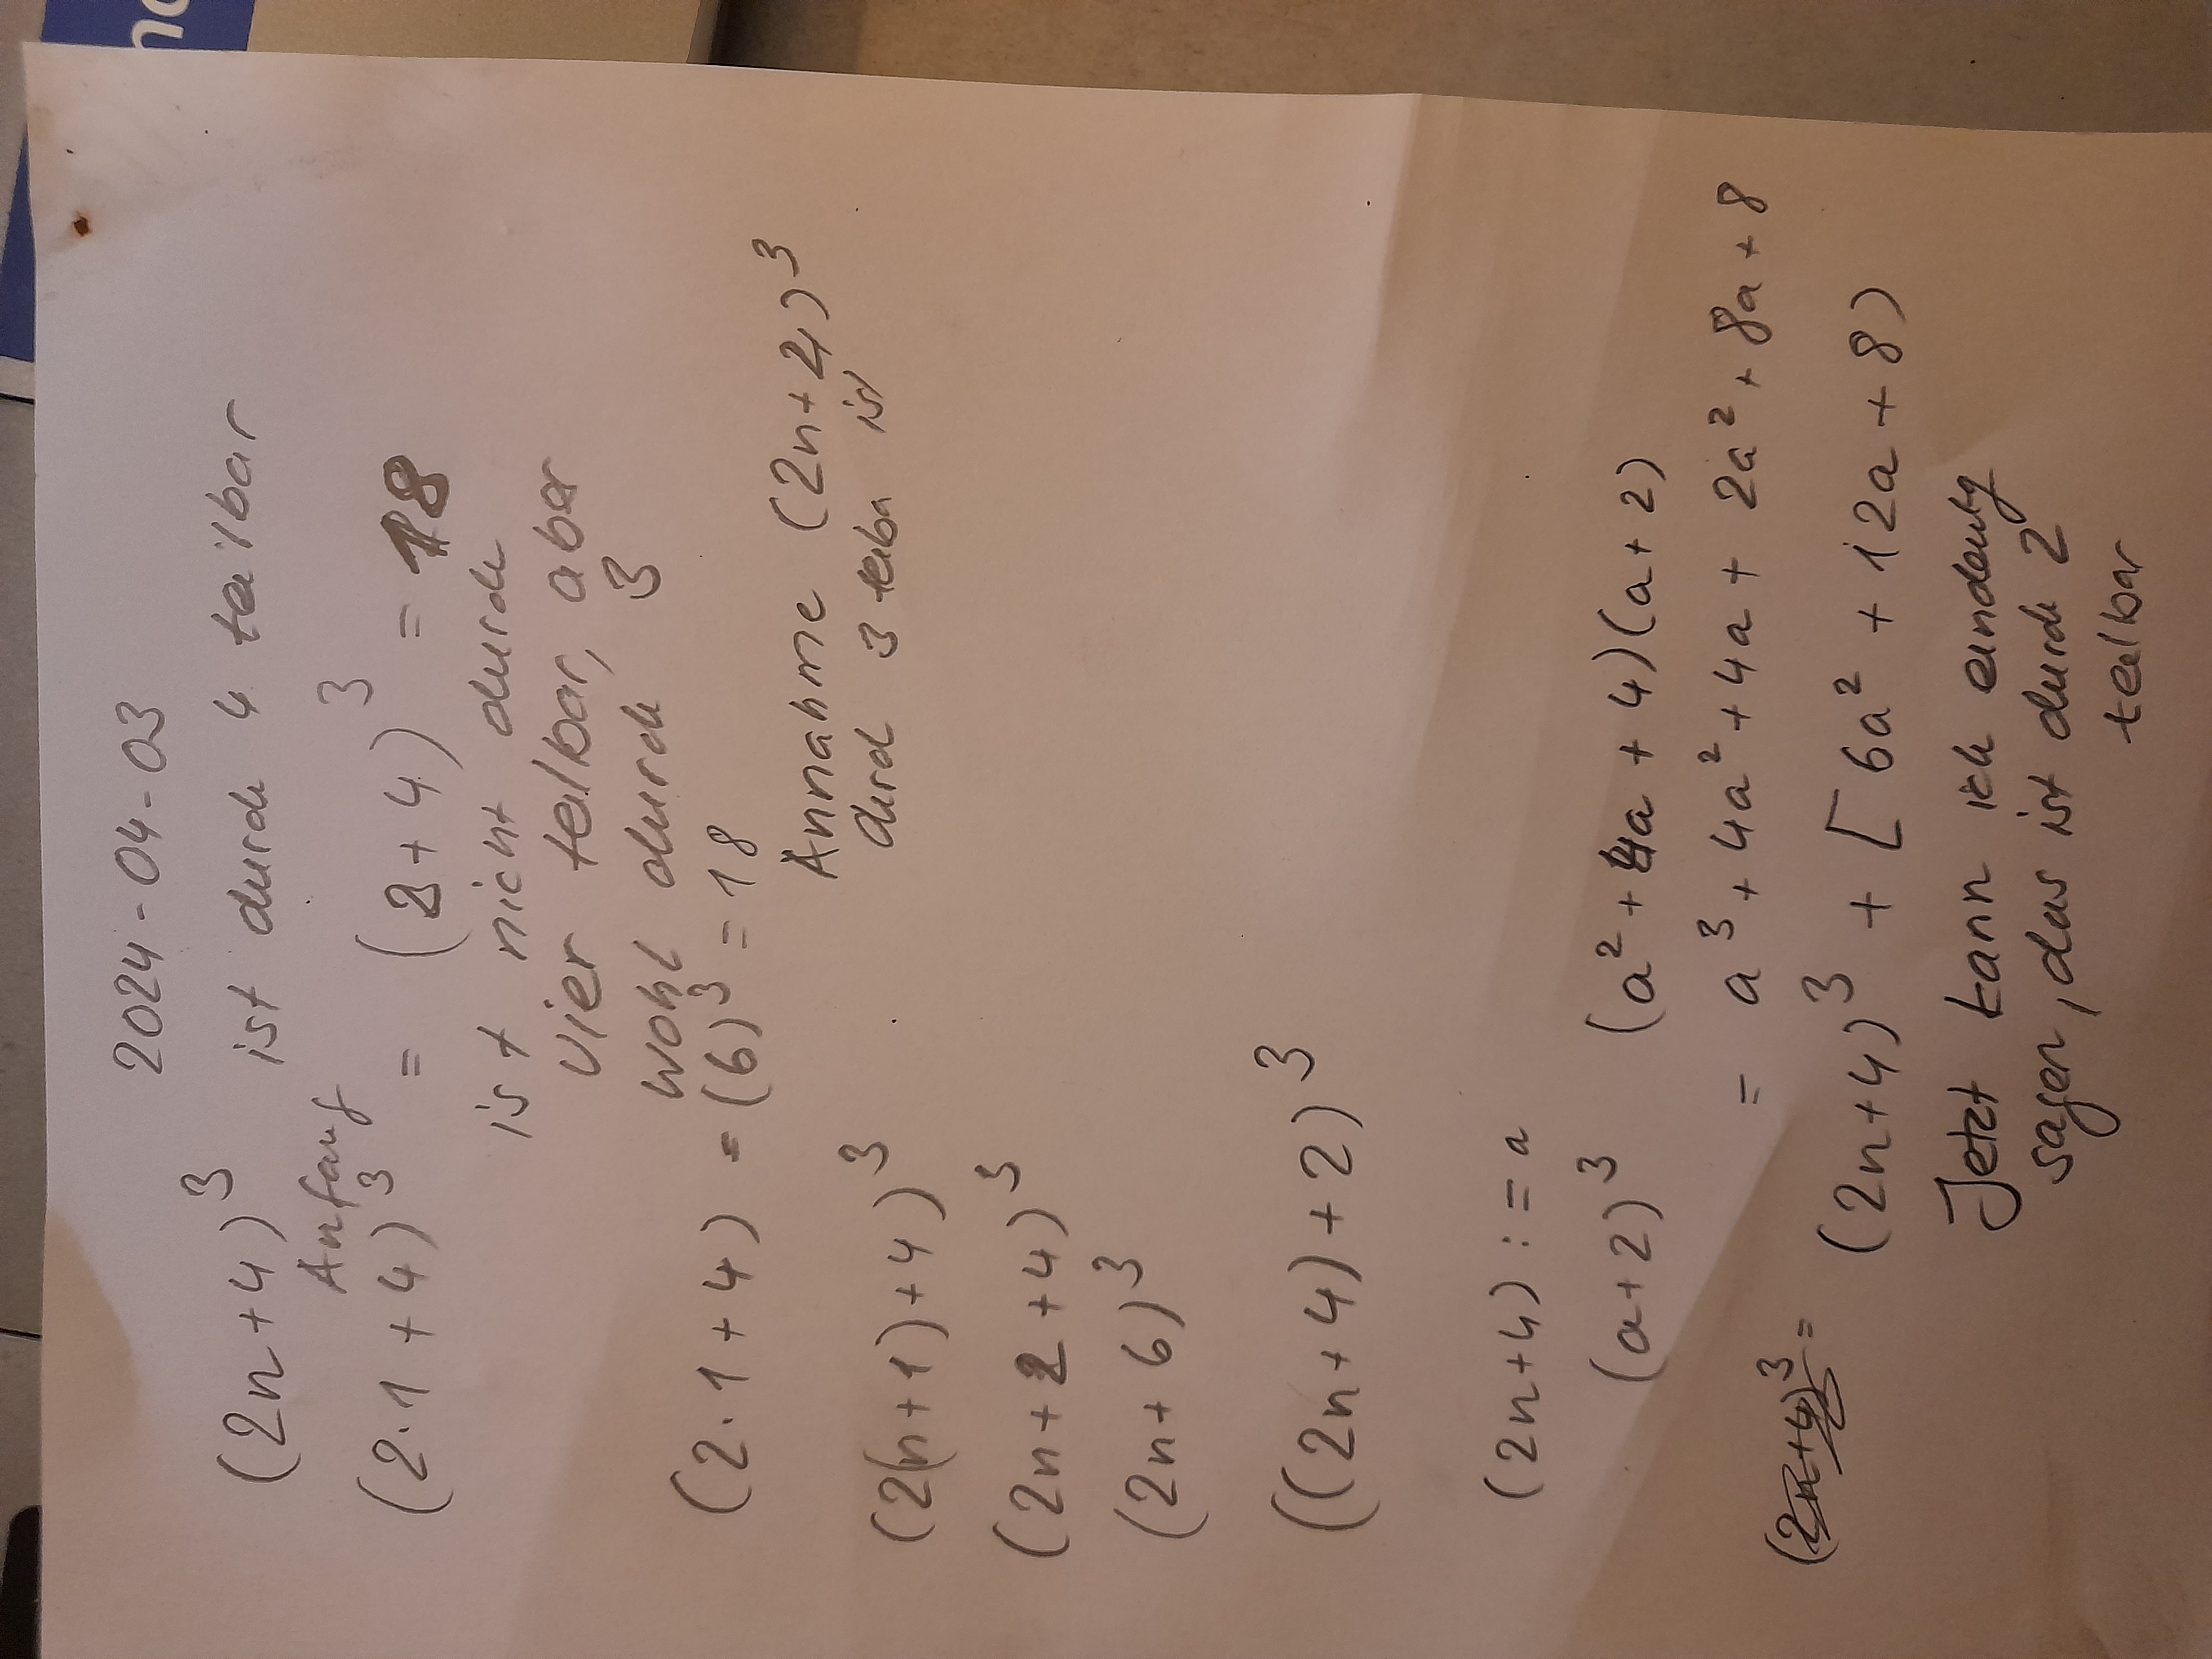 2024-04-03
(2n+4)³ ist durch 4 teilbar
Anfang
(2·1+4)³ = (2+4)³ = 18
ist nicht durch
vier teilbar, aber
wohl durch 3
(2·1+4) = (6)³ = 18
Annahme (2n+4)³
durch 3 teilba ist
(2(n+1)+4)³
(2n+2+4)³
(2n+6)³
((2n+4)+2)³
(2n+4) := a
(a+2)³ (a²+4a+4)(a+2)
= a³+4a²+4a+2a²+8a+8
(2n+4)³ =
(2n+4)³ + [6a²+12a+8)
Jetzt kann ich eindeutig
sagen, das ist durch 2
teilbar